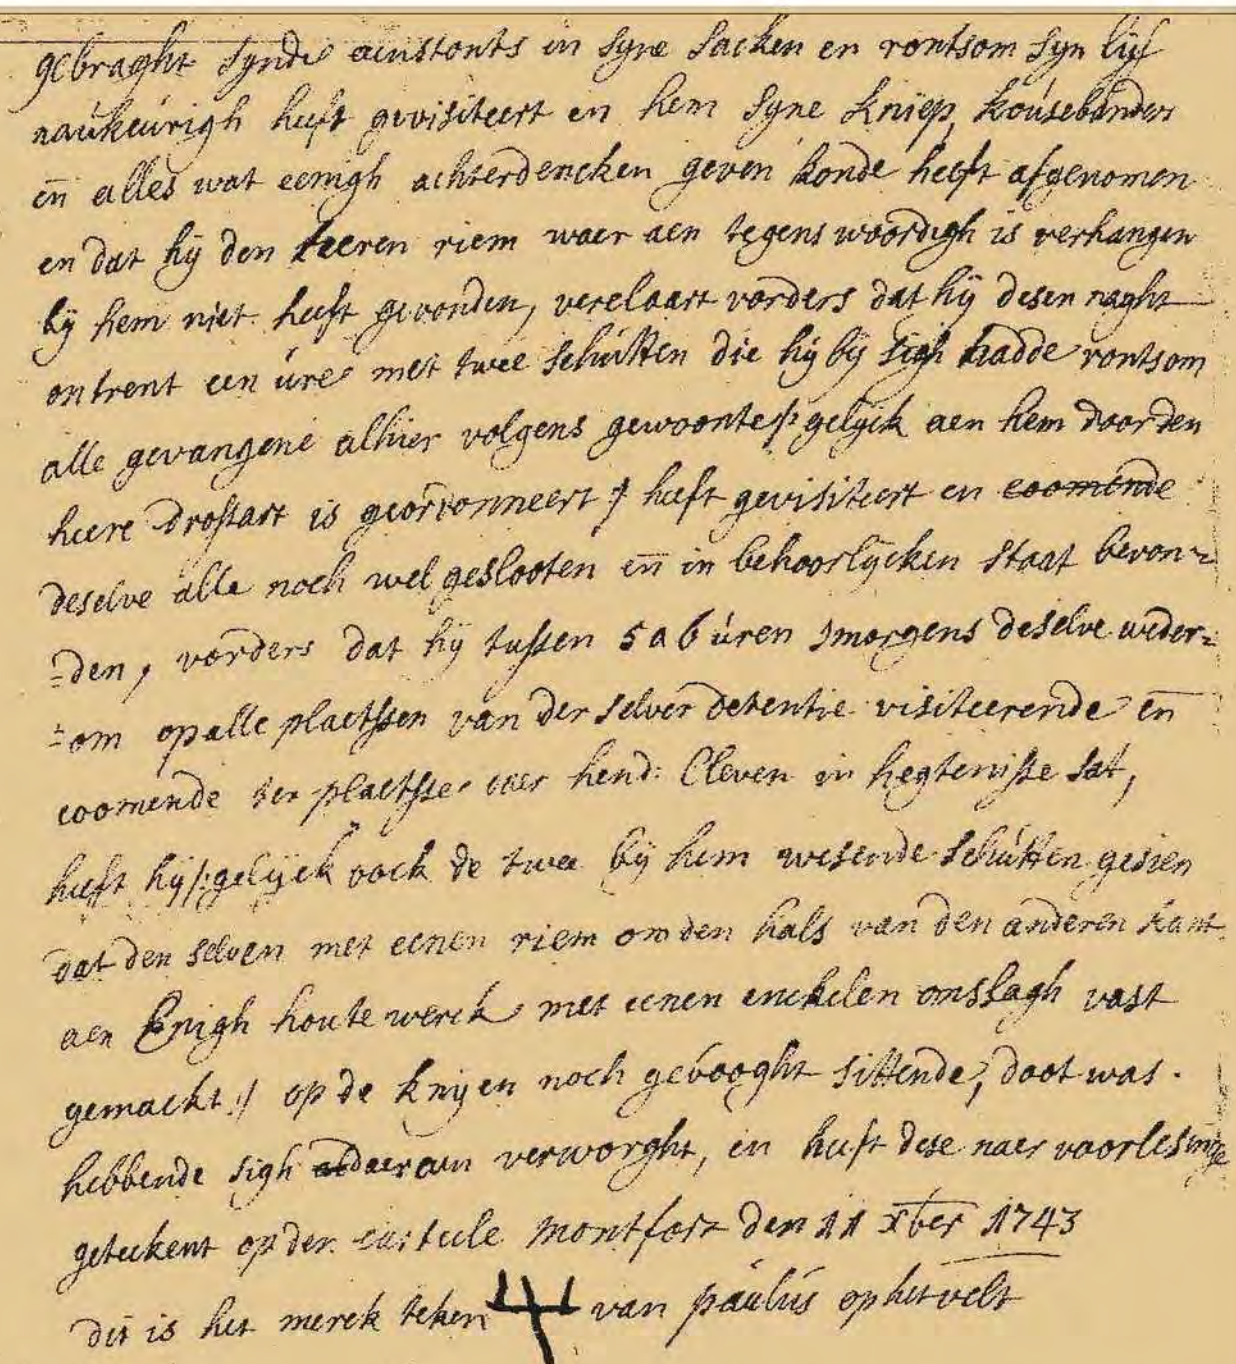 gebraght synde aenstonts in syne sacken en rontsom syn lijf
naukeurigh heeft gevisiteert en hem syne kniep, kousebanders
en̄ alles wat eenigh achterdencken geven konde heeft afgenomen
en dat hij den leeren riem waer aen tegenswoordigh is verhangen
bij hem niet heeft gevonden, verclaart vorders dat hij desen naght
ontrent een ure met twee schutten die hij bij sigh hadde rontsom
alle gevangene alhier volgens gewoonte /: gelijck aen hem door den
heere Drossart is georدonneert :/ heeft gevisiteert en coomende
deselve alle noch wel geslooten en̄ in behoorlijcken staat bevon=
=den, vorders dat hij tussen 5 a 6 uren smorgens deselve weder=
=om op alle plaetssen van der selver detentie visiteerende en̄
coomende ter plaetsse waer hend: Cleven in hegtenisse sat,
heeft hij /: gelijck oock de twee bij hem wesende schutten gesien
dat den selven met eenen riem om den hals van den anderen kant
aen Enigh houte werck met eenen enckelen omslagh vast
gemackt :/ op de knijen noch gebooght sittende, doot was.
hebbende sigh daer aen verworght, en heeft dese naer voorlesinge
geteekent op den casteele montfort den 11 xber 1743
dit is het merck teken van paulus ophetvelt